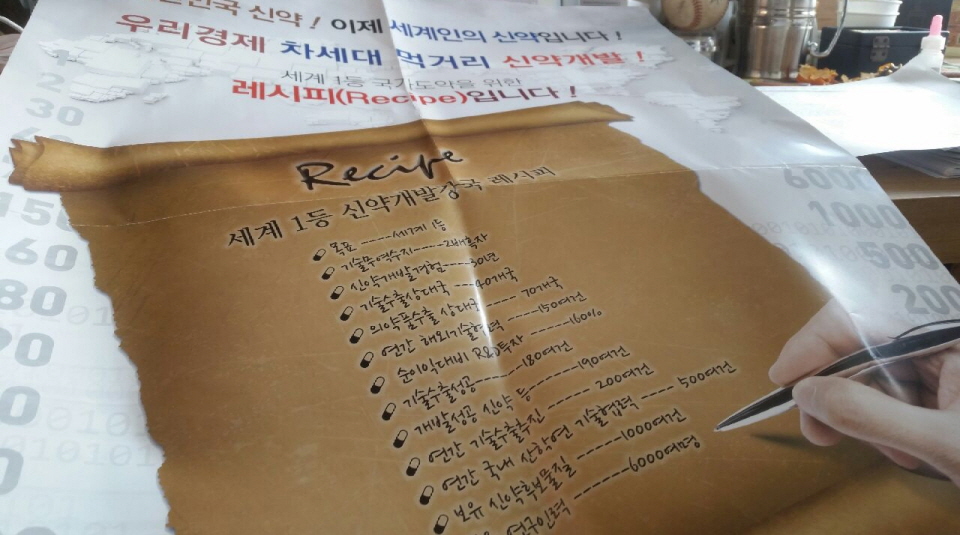 신약! 이제 세계인의 신약입니다!
우리경제 차세대 먹거리 신약개발!
세계 1등 국가도약을 위한
레시피(Recipe)입니다!
Recipe
세계 1등 신약개발강국 레시피
목표 -----세계 1등
기술무역수지-----2배흑자
신약개발경험----30년
기술수출상대국 ---40개국
의약품수출 상대국 ---- 70개국
연간 해외기술협력 -----150여건
순이익대비 R&D투자 ------160%
기술수출성공-------180여건
개발성공 신약 등-------190여건
연간 기술수출추진 ------ 200여건
연간 국내 산학연 기술협력 ----- 500여건
보유 신약후보물질 ------1000여건
연구인력 -------6000여명
30
150
60
80
90
1010
6000
1000
500
200